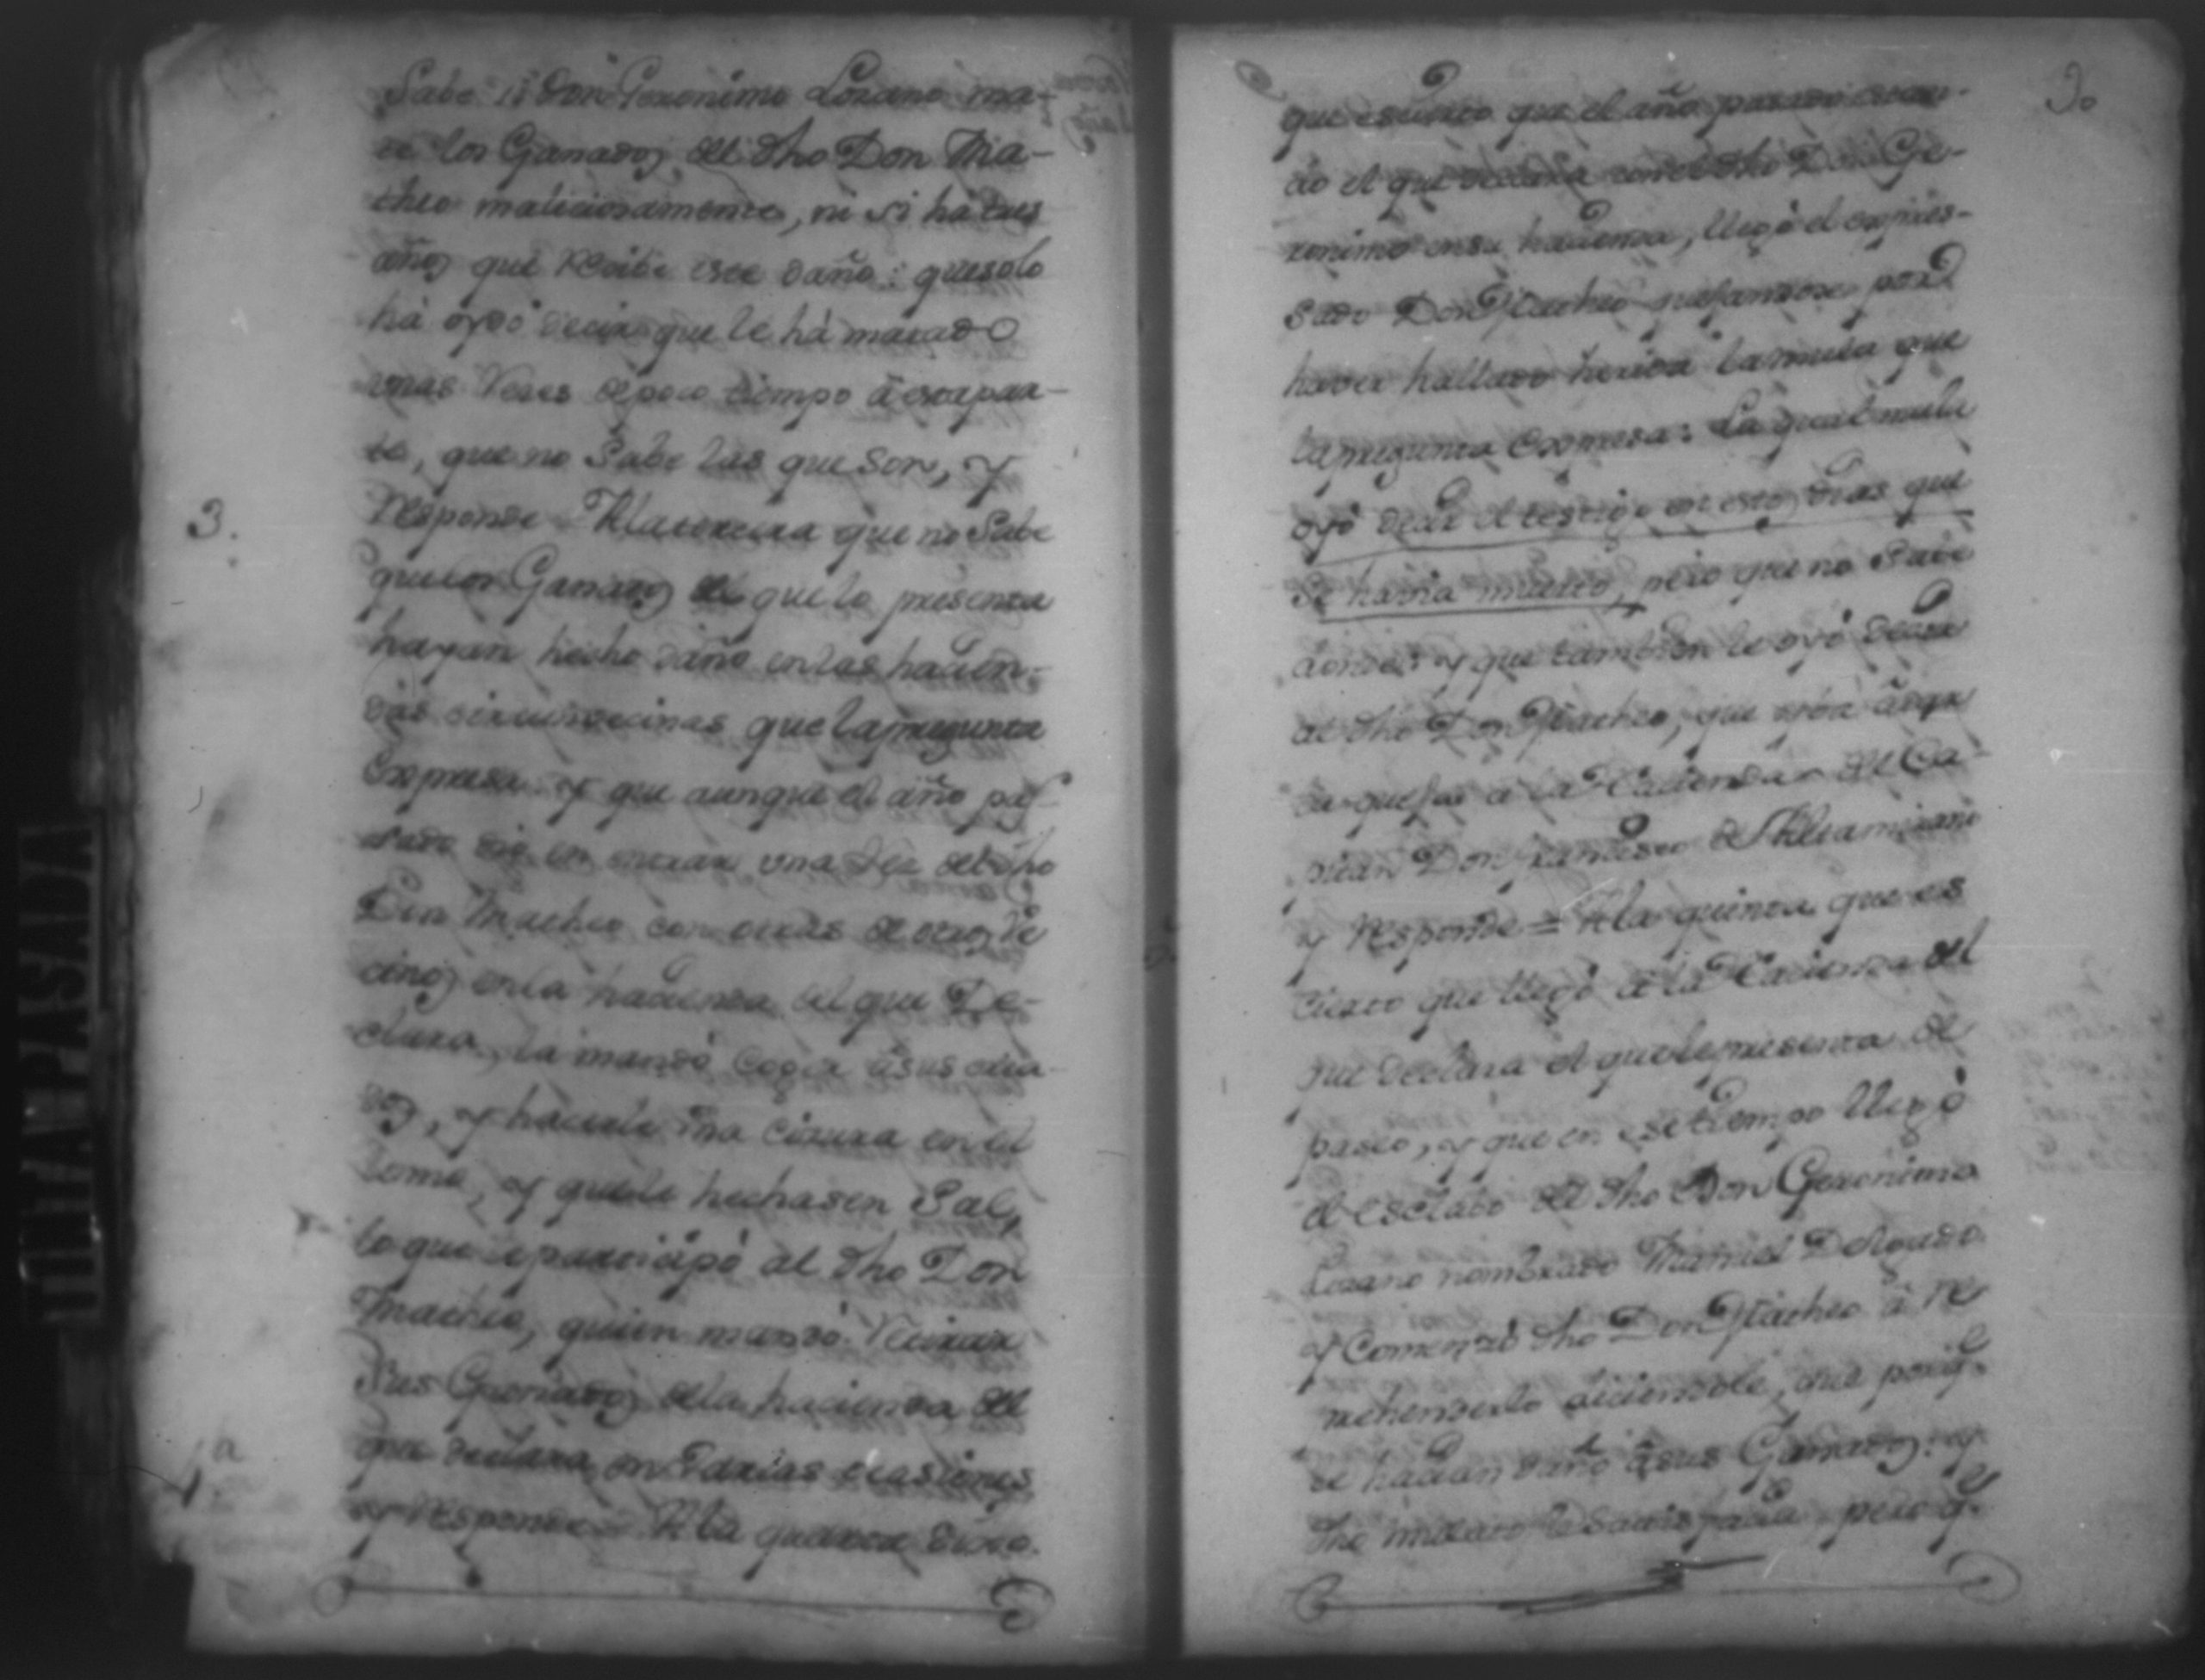 Sabe si Don Geronimo Lozano ma-
te los Ganados del dho Don Ma-
theo maliciosamente, ni si há tres
años que recibe ese daño: que solo
há oydo decir que le há matado
unas reses de poco tiempo á esta par-
te, que no Sabe las que Son, y
responde A la tercera que no Sabe
que los Ganados del que lo presenta
hayan hecho daño en las hacien-
das circunvecinas que la pregunta
expresa. y que aunque el año pa-
sado dio en una res del dho
Don Matheo con otras de otros ve
cinos en la hacienda del que De-
clara, la mandó coger á sus cria-
dos, y hacerle una en el
lomo, y que le hechasen Sal,
lo que le participó al dho Don
Matheo, quien mandó retirar
Sus Ganados de la hacienda del
que declara en varias ocasiones
y responde A la quarta dixo.
3.
4a
30
que es cierto que el año pasado estan-
do el que declara con el dho Don Ge-
ronimo en su hacienda, llegó el expres-
sado Don Matheo quejandose por
haver hallado herida la mula que
la pregunta expresa: La qual mula
oyó decir el testigo en estos dias que
se havia muerto, pero que no Save
donde: y que tambien le oyó decir
al dho Don Matheo, que
quejas a la Hacienda del Ca-
pitan Don Francisco de Altamirano
y responde = A la quinta que es
Cierto que llegó á la Hacienda del
que declara el que le presenta de
paseo, y que en ese tiempo llegó
el esclavo del dho Don Geronimo
Lozano nombrado Manuel Delgado
y Comenzó dho Don Matheo á re
prehenderlo diciendole, que porq.
le hacian daño á sus Ganados: y
dho mulato le satisfacia, pero q.